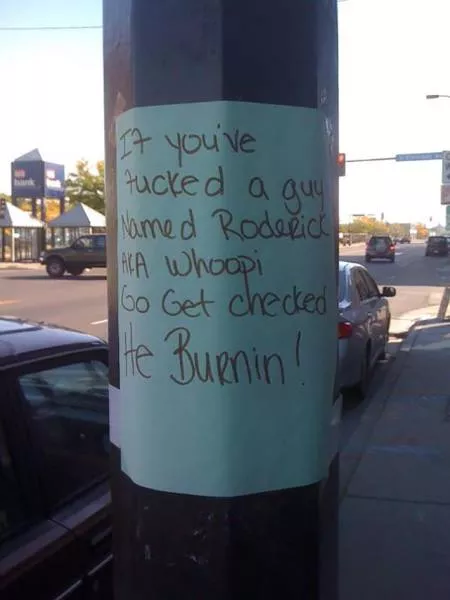 If you've
fucked a guy
Named Roderick
AKA Whoopi
Go Get checked
He Burnin!
bank